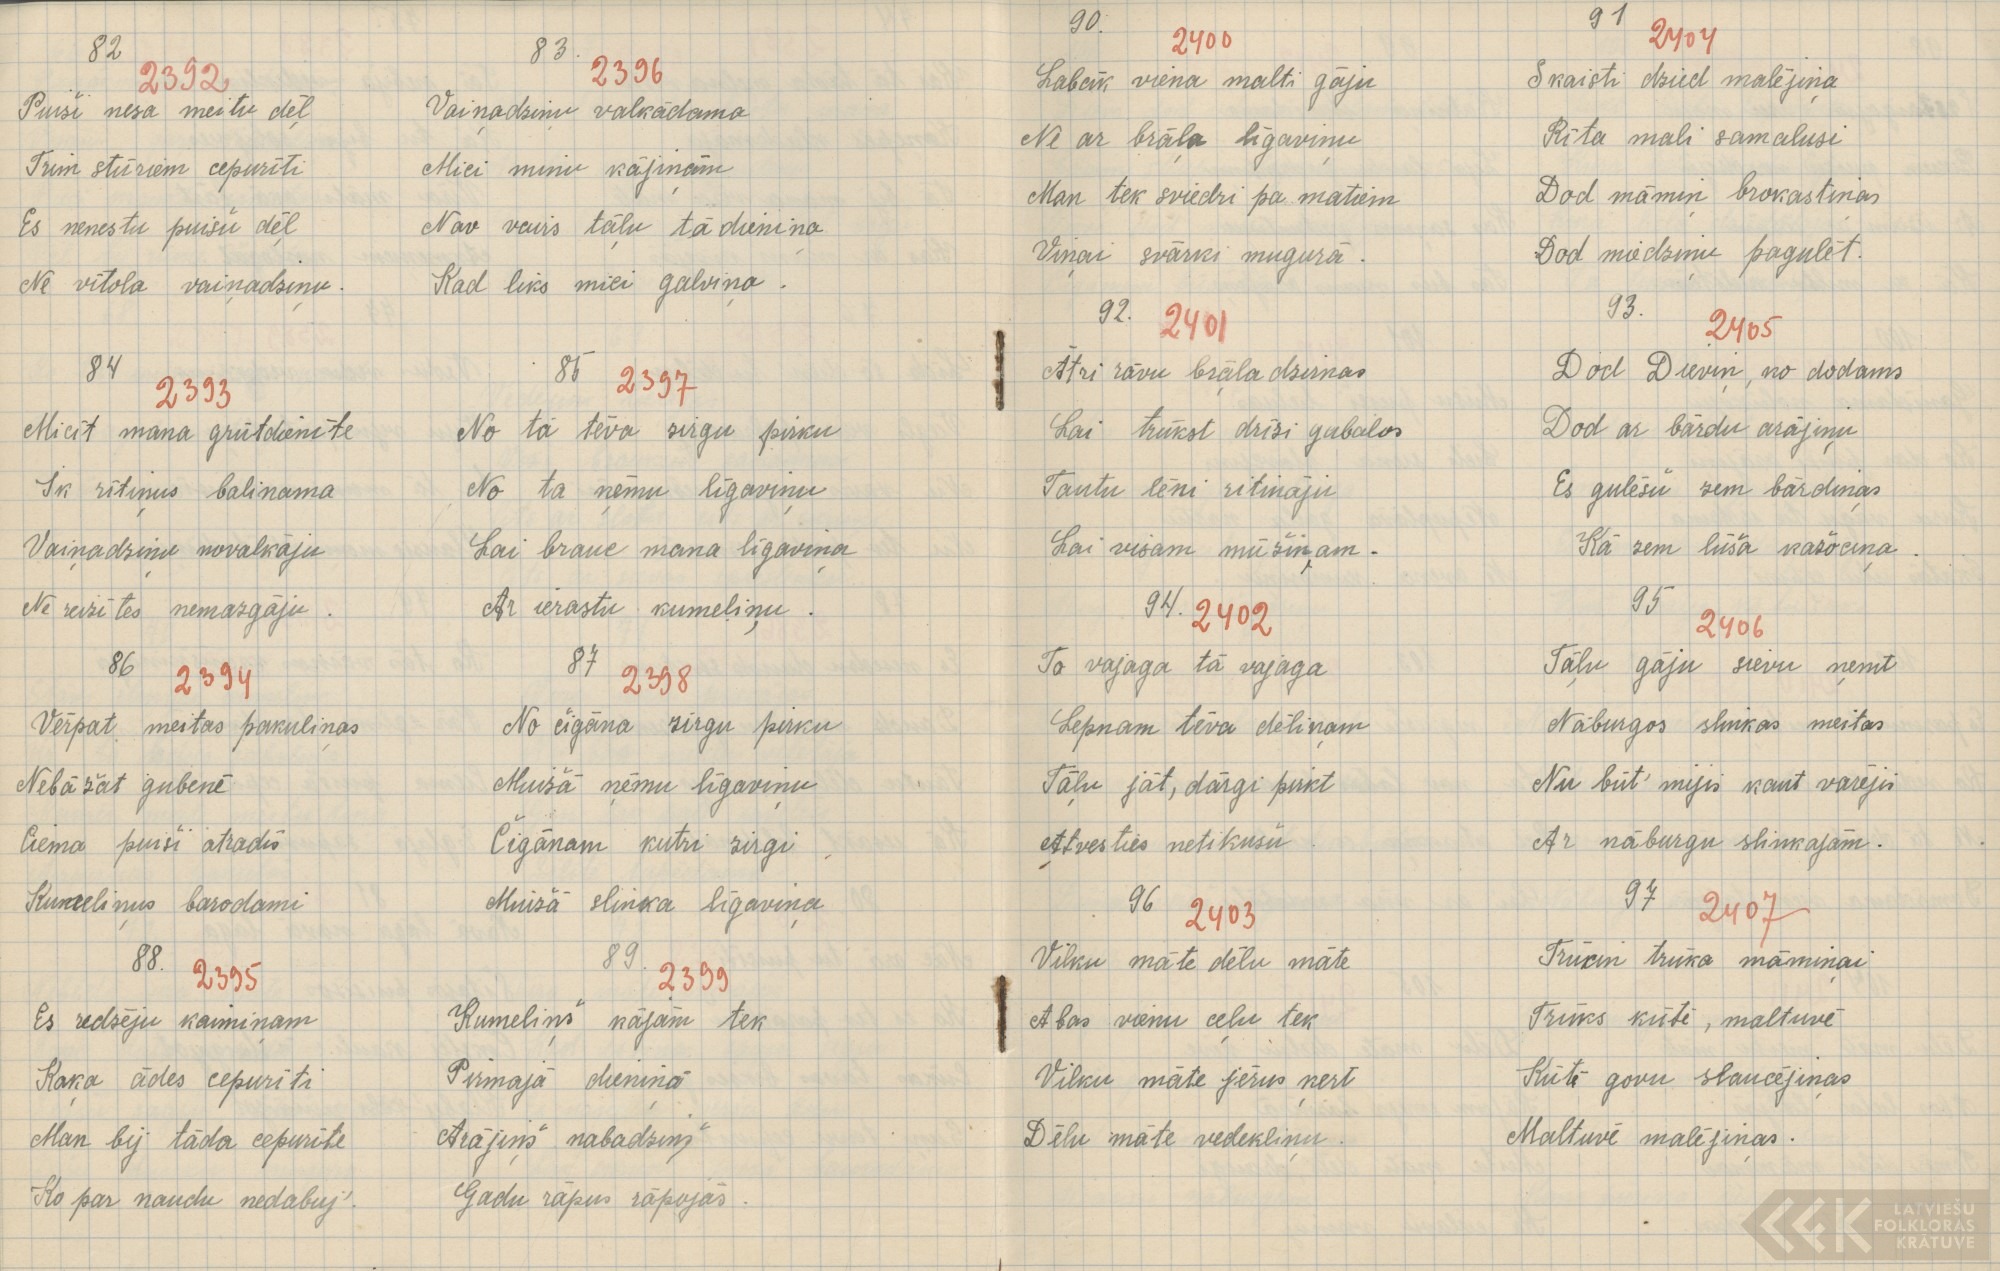 82
2392
Puiši nesa meitu dēļ
Trim stūriem cepurīti
Es nenestu puišu dēļ
Ne vītola vaiņadziņu.
84
2393
Micīt mana grūtdienīte
Ik rītiņus balinama
Vaiņadziņu novalkāju
Ne reizītes nemazgāju.
86
2394
Vērpat meitas pakuliņas
Nebāzāt gubenē
Ciema puiši atradīs
Kumeliņus barodami
88.
2395
Es redzēju kaimiņam
Kaķa ādes cepurīti
Man bij tāda cepurīte
Ko par naudu nedabuj'.
83.
2396
Vaiņadziņu valkādama
Mici minu kājiņām
Nav vairs tāļu tā dieniņa
Kad liks mici galviņa.
85
2397
No tā tēva zirgu pirku
No ta ņēmu līgaviņu
Lai brauc mana līgaviņa
Ar ierastu kumeliņu.
87
2398
No čigāna zirgu pirku
Muižā ņēmu līgaviņu
Čigānam kutri zirgi
Muižā slinka līgaviņa
89.
2399
Kumeliņš kājām tek
Pirmajā dieniņā
Arājiņš nabadziņš
Gadu rāpus rāpojās.
90.
2400
Labāk viena malti gāju
Ne ar brāļa līgaviņu
Man tek sviedri pa matiem
Viņai svārki mugurā.
92.
2401
Ātri rāvu brāļa dzirnas
Lai trūkst drīzi gabalos
Tautu lēni ritināju
Lai visam mūžiņam.
94.
2402
Tā vajaga tā vajaga
Lepnam tēva dēliņam
Tāļu jāt, dārgi pirkt
Atvesties netikušu
96
2403
Vilku māte dēlu māte
Abas vienu ceļu tek
Vilku māte jērus ņert
Dēlu māte vedekliņu.
91
2404
Skaisti dzied malējiņa
Rīta mali samalusi
Dod māmiņ brokastiņas
Dod miedziņu pagulēt.
93.
2405
Dod Dieviņ, no dodams
Dod ar bārdu arājiņu
Es gulēšu zem bārdiņas
Kā zem lūša kažociņa.
95
2406
Tāļu gāju sievu ņemt
Nāburgos slinkas meitas
Nu būt' mijis kaut varējis
Ar nāburgu slinkajām.
97
2407
Trūcin trūka māmiņai
Trūks kūtē, maltuvē
Kūtē govu slaucējiņas
Maltuvē malējiņas.
LATVIEŠU
FOLKLORAS
KRĀTUVE